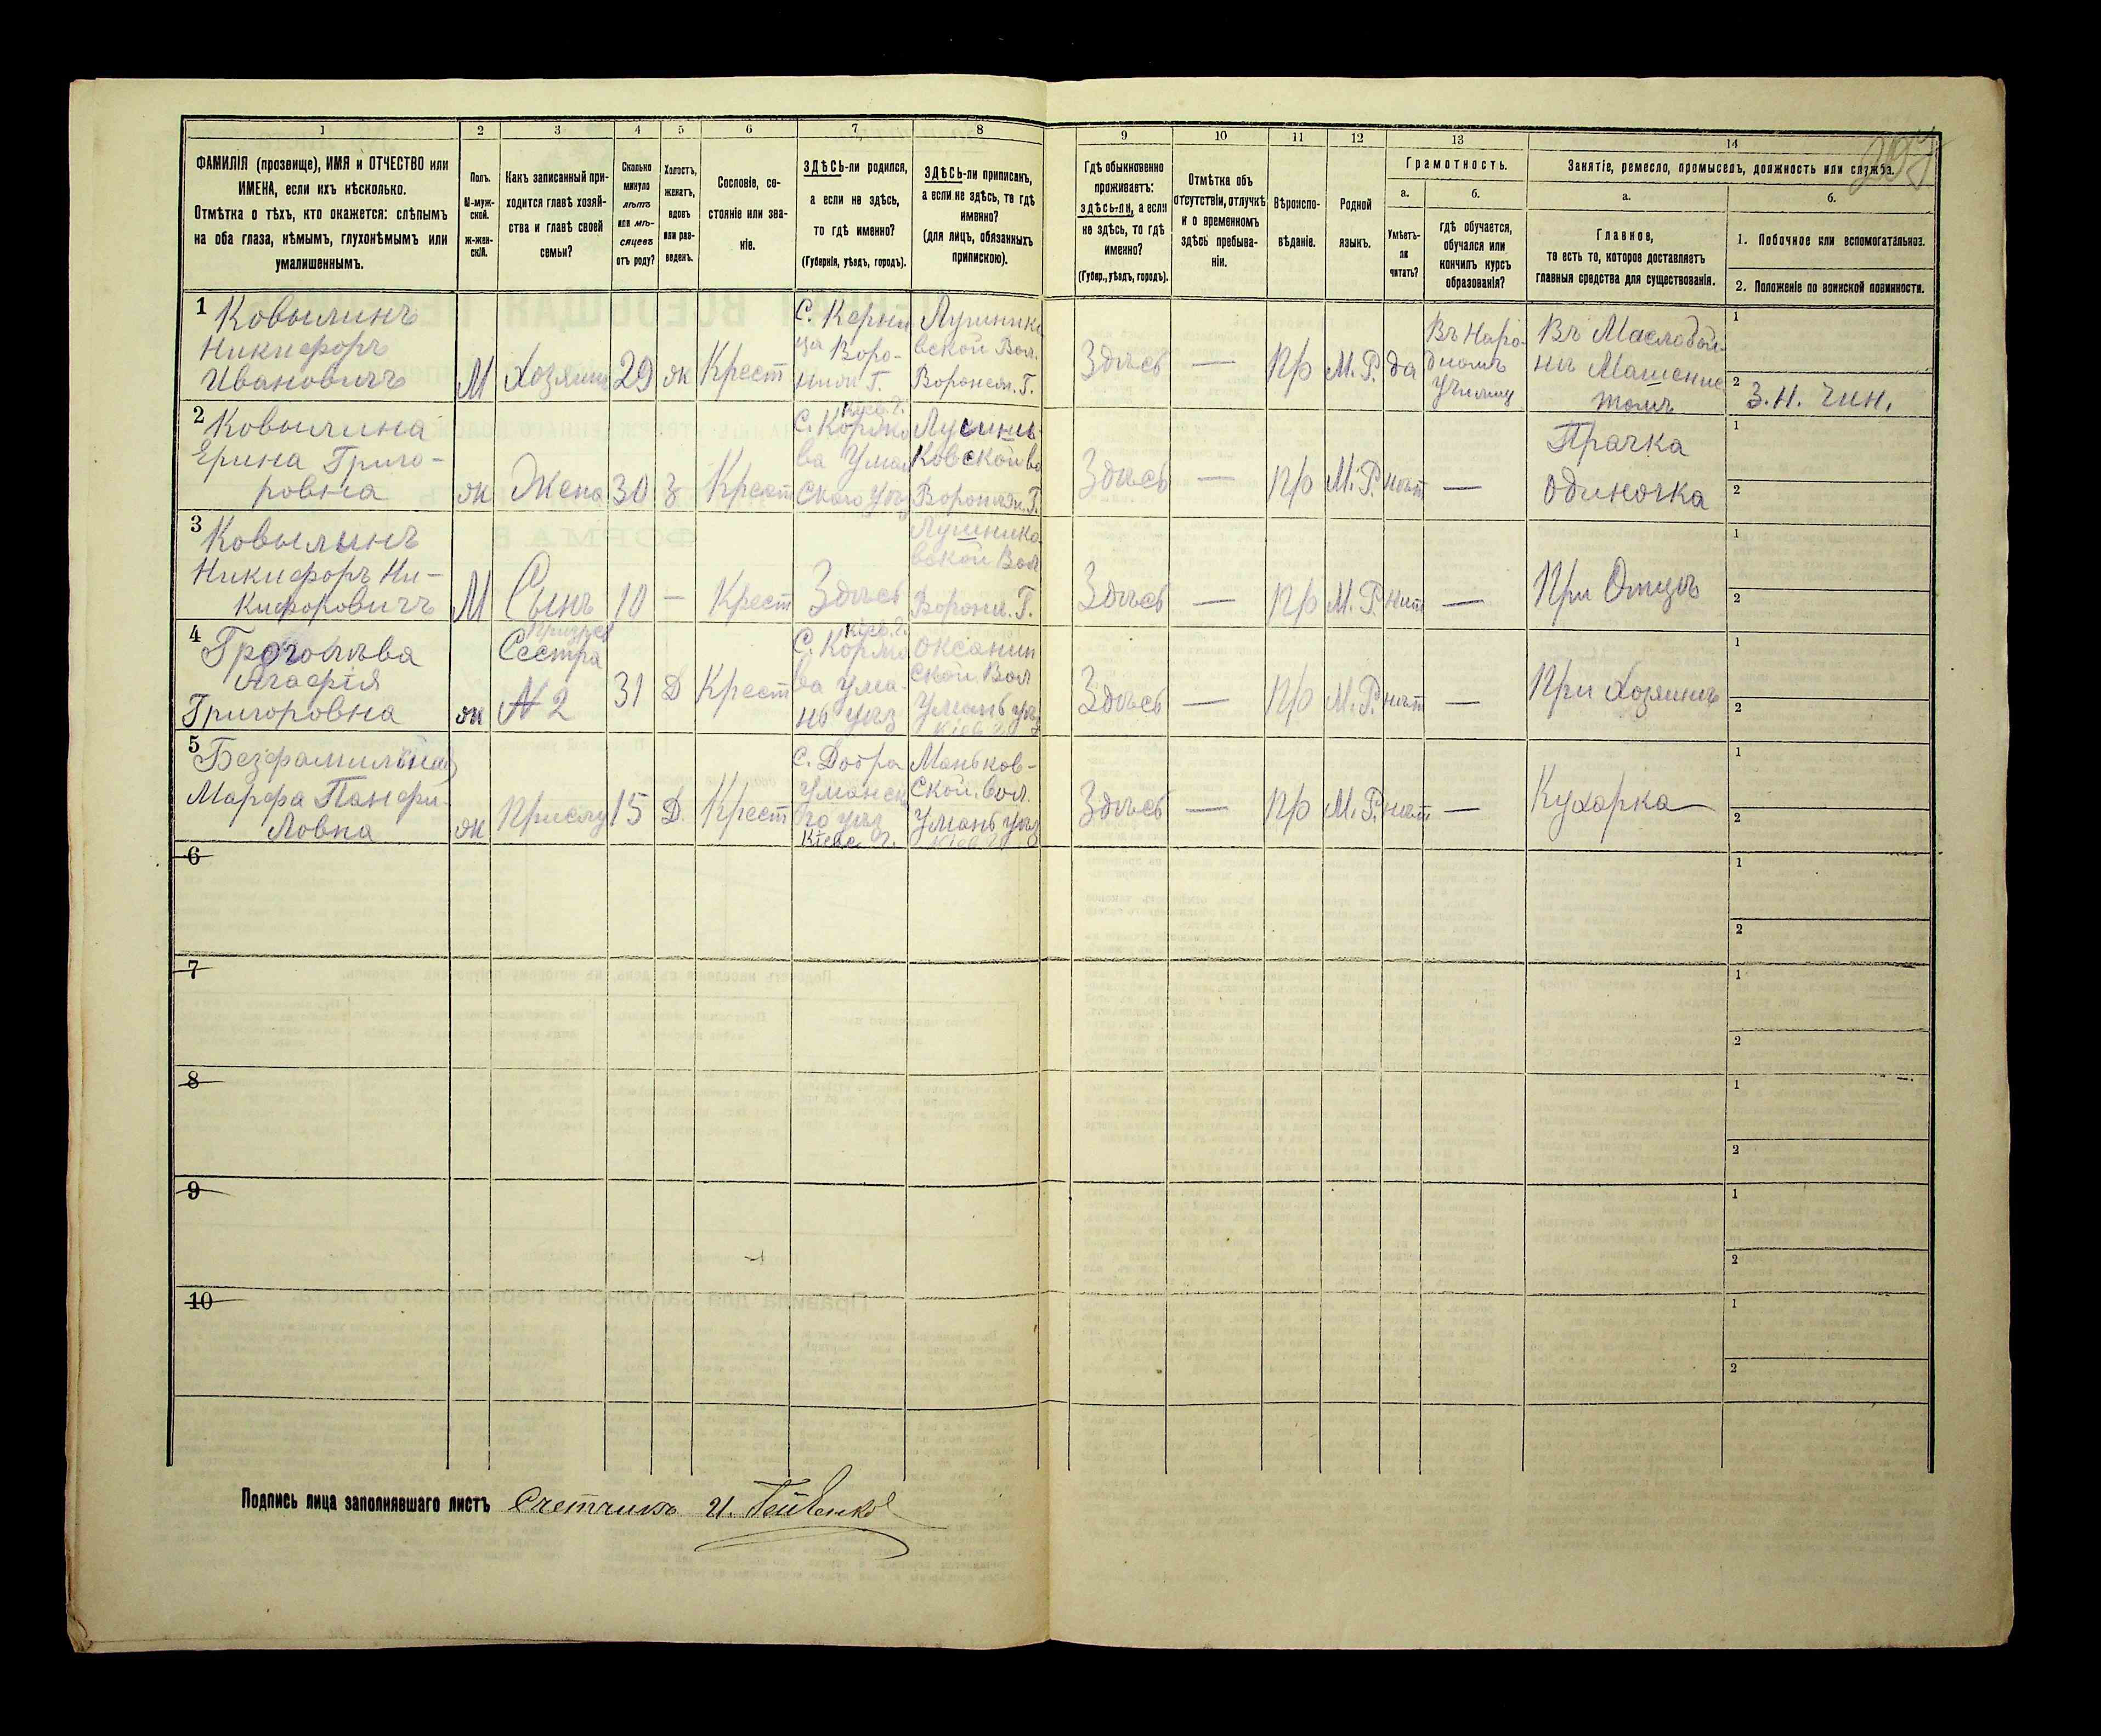 1
2
3
4
5
6
7
8
ФАМИЛІЯ (прозвище), ИМЯ и ОТЧЕСТВО или
ИМЕНА, если ихъ нѣсколько.
Отмѣтка о тѣхъ, кто окажется: слѣпымъ
на оба глаза, нѣмымъ, глухонѣмымъ или
умалишеннымъ.
Полъ.
М-муж-
ской.
ж-жен-
скій.
Какъ записанный при-
ходится главѣ хозяй-
ства и главѣ своей
семьи?
Сколько
минуло
лѣтъ
или мѣ-
сяцевъ
отъ роду?
Холостъ,
женатъ,
вдовъ
или раз-
веденъ.
Сословіе, со-
стояніе или зва-
ніе.
ЗДѢСЬ-ли родился,
а если не здѣсь,
то гдѣ именно?
(Губернія, уѣздъ, городъ).
ЗДѢСЬ-ли приписанъ,
а если не здѣсь, то гдѣ
именно?
(для лицъ, обязанныхъ
припискою).
9
10
11
12
13
14
Гдѣ обыкновенно
проживаетъ:
здѣсь-ли, а если
не здѣсь, то гдѣ
именно?
(Губер., уѣздъ, городъ).
Отмѣтка объ
отсутствіи, отлучкѣ
и о временномъ
здѣсь пребыва-
ніи.
Вѣроиспо-
вѣданіе.
Родной
языкъ.
Грамотность.
а.
Умѣетъ-
ли
читать?
б.
гдѣ обучается,
обучался или
кончилъ курсъ
образованія?
Занятіе, ремесло, промыселъ, должность или служба.
а.
Главное,
то есть то, которое доставляетъ
главныя средства для существованія.
б.
1. Побочное или вспомогательное.
2. Положеніе по воинской повинности.
1 Ковылинъ
Никифоръ
Ивановичъ
М
Хозяинъ
29
ж
Крест
Воро-
вской Вол.
Здѣсь
—
Пр
М. Р.
да
Въ Наро-
дномъ
Въ Маслобой-
1
2 З. Н. Чин.
2 Ковылина
Ерина Григо-
ровна
ж
Жена
30
З
Крест
Кіев. г.
Здѣсь
—
Пр
М. Р.
нѣт
—
Прачка
одиночка
1
2
3 Ковылинъ
Никифоръ Ни-
кифоровичъ
М
Сынъ
10
—
Крест
Здѣсь
вской Вол
Здѣсь
—
Пр
М. Р.
нѣт
—
При Отцѣ
1
2
4
Агафія
Григоровна
ж
Сестра
N 2
31
Д
Крест
Кіев. г.
ской Вол
Умань уѣз
Кіев г
Здѣсь
—
Пр
М. Р.
нѣт
—
При Хозяинѣ
1
2
5
Марфа Панфи-
ловна
ж
Прислу
15
Д.
Крест
с. Добра
Уманск
го уѣз
Кіевс г.
Маньков-
ской вол.
Умань уѣз
Кіев г
Здѣсь
—
Пр
М. Р.
нѣт
—
Кухарка
1
2
6
1
2
7
1
2
8
1
2
9
1
2
10
1
2
Подпись лица заполнявшаго листъ Счетчикъ И.